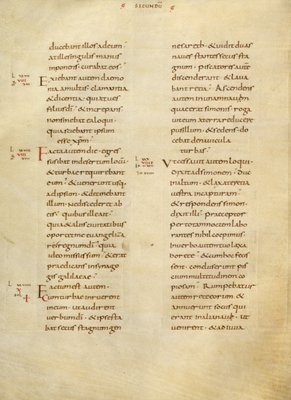 SECUNDŪ
ducebant illos ad eum
at ille singulis manus
inponens curabat eos ·
Exiebant autem daemo
nia a multis clamantia
& dicentia · quia tu es
filius dī · & increpans
non sinebat ea loqui ·
quia sciebant ipsum
esse xp̄m ·
Facta autem die · egres
sus ibat in desertum locū
& turbae requirebant
eum · & uenerunt usq;
ad ipsum · & detinebant
illum ne discederet ab
eis · quibus ille ait ·
quia & aliis ciuitatibus
oportet me euangeliza
re regnum dī · quia
ideo missus sum · & erat
praedicans in synago
gis galilaeae ·
Factum est autem
cum turbae inruerent
in eum · ut audirent
uerbum dī · & ipse sta
bat secus stagnum gen
nesareth · & uidit duas
naues stantes secus sta
gnum · piscatores autē
discenderant & laua
bant retia · Ascendens
autem in unam nauem
quae erat simonis · roga
uit eum a terra reducere
pusillum · & sedens do
cebat de nauicula
turbas ·
Ut cessauit autem loqui
dixit ad simonem · Duc in
altum · & laxate retia
uestra in capturam
& respondens simon
dixit illi · praeceptor
per totam noctem labo
rantes nihil coepimus ·
in uerbo autem tuo laxa
bo rete · & cum hoc fecis
sent · concluserunt pis
cium multitudinem co
piosam · Rumpebatur
autem rete eorum · &
annuerunt sociis qui
erant in alia naui · ut
uenirent · & adiuua